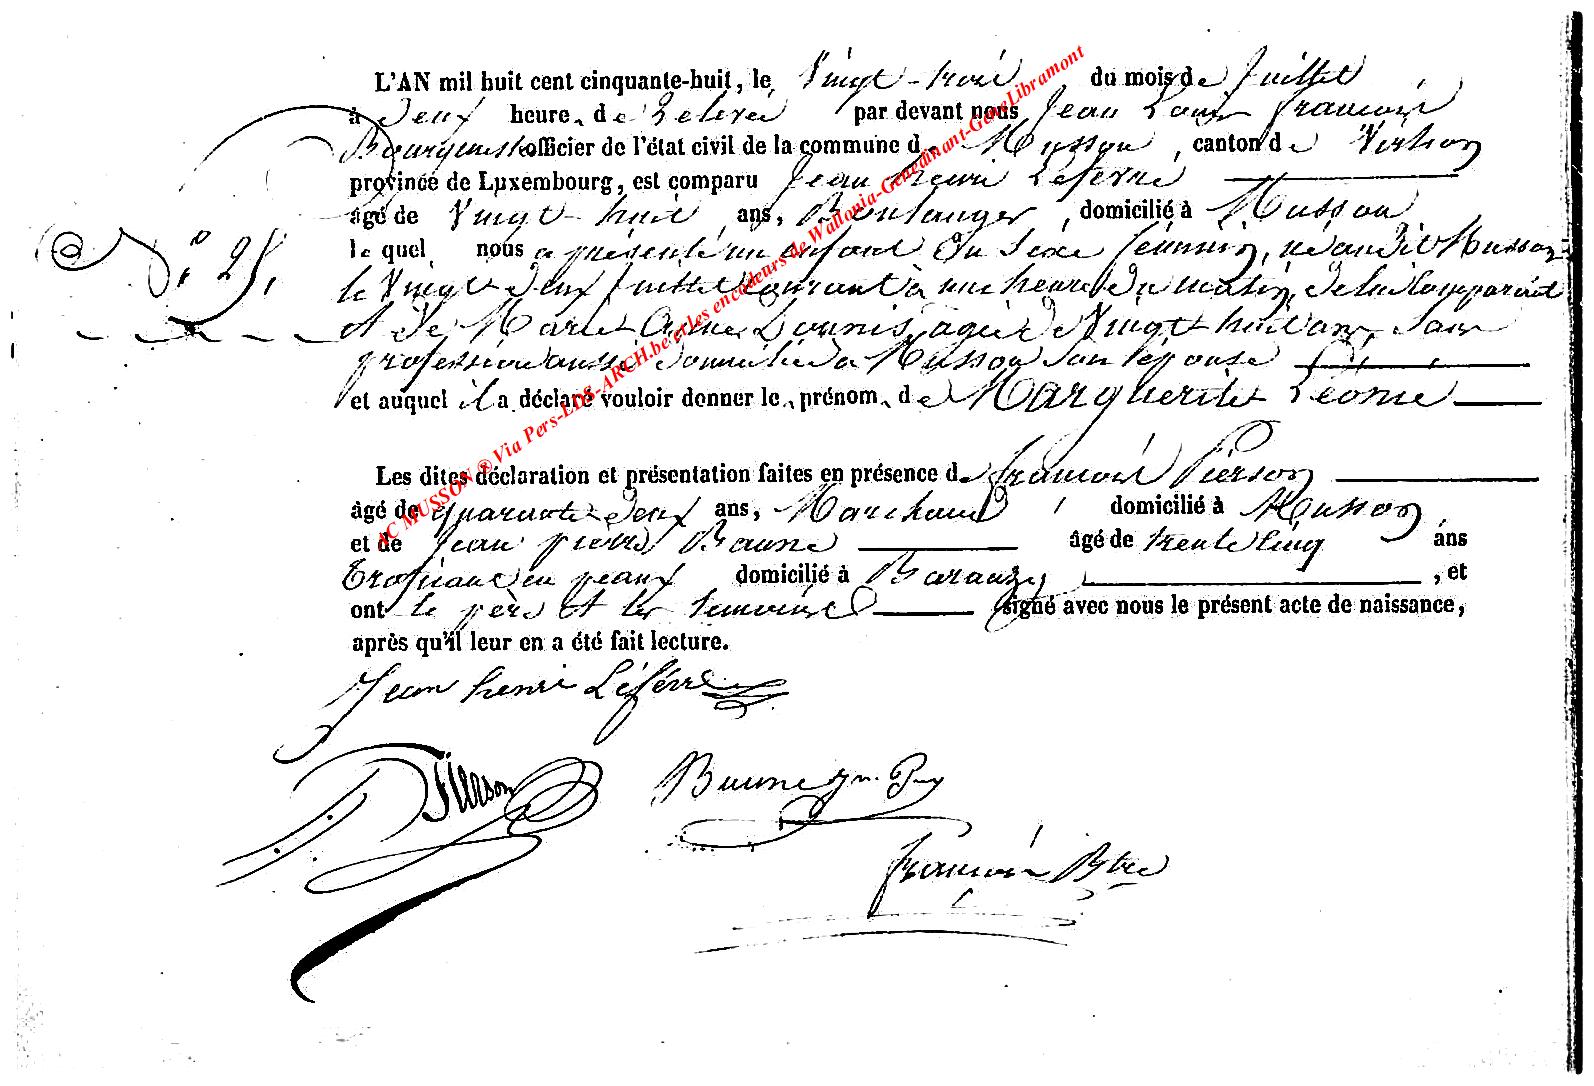 L'AN mil huit cent cinquante-huit, le Vingt-trois du mois de Juillet
à Deux heure, de Relevée par devant nous Jean Louis françois
officier de l'état civil de la commune de Musson, canton de Virton
province de Luxembourg, est comparu Jean henri Lefevre
âgé de Vingt-huit ans, Boulanger, domicilié à Musson
le quel nous a présenté un enfant du sexe féminin, né audit Musson
N° 25. le Vingt deux Juillet courant à une heure du matin, de lui Comparant
et de Marie Anne agée de Vingt huit ans, sans
profession aussi domiciliée à Musson son épouse
et auquel il a déclaré vouloir donner le, prénom, de Marguerite Léonie
Les dites déclaration et présentation faites en présence de françois Pierson
âgé de quarante-deux ans, Marchand, domicilié à Musson,
et de Jean pierre Baune âgé de trente cinq ans
en peaux domicilié à Baranzy, et
ont le père et les temoins signé avec nous le présent acte de naissance,
après qu'il leur en a été fait lecture.
Jean henri Léfévre
Pierson Baune Jn. Pre
françois
AC MUSSON ® Via Pers-EDS-ARCH.be et Les encodeurs de Wallonia-Genedinant-GeneLibramont